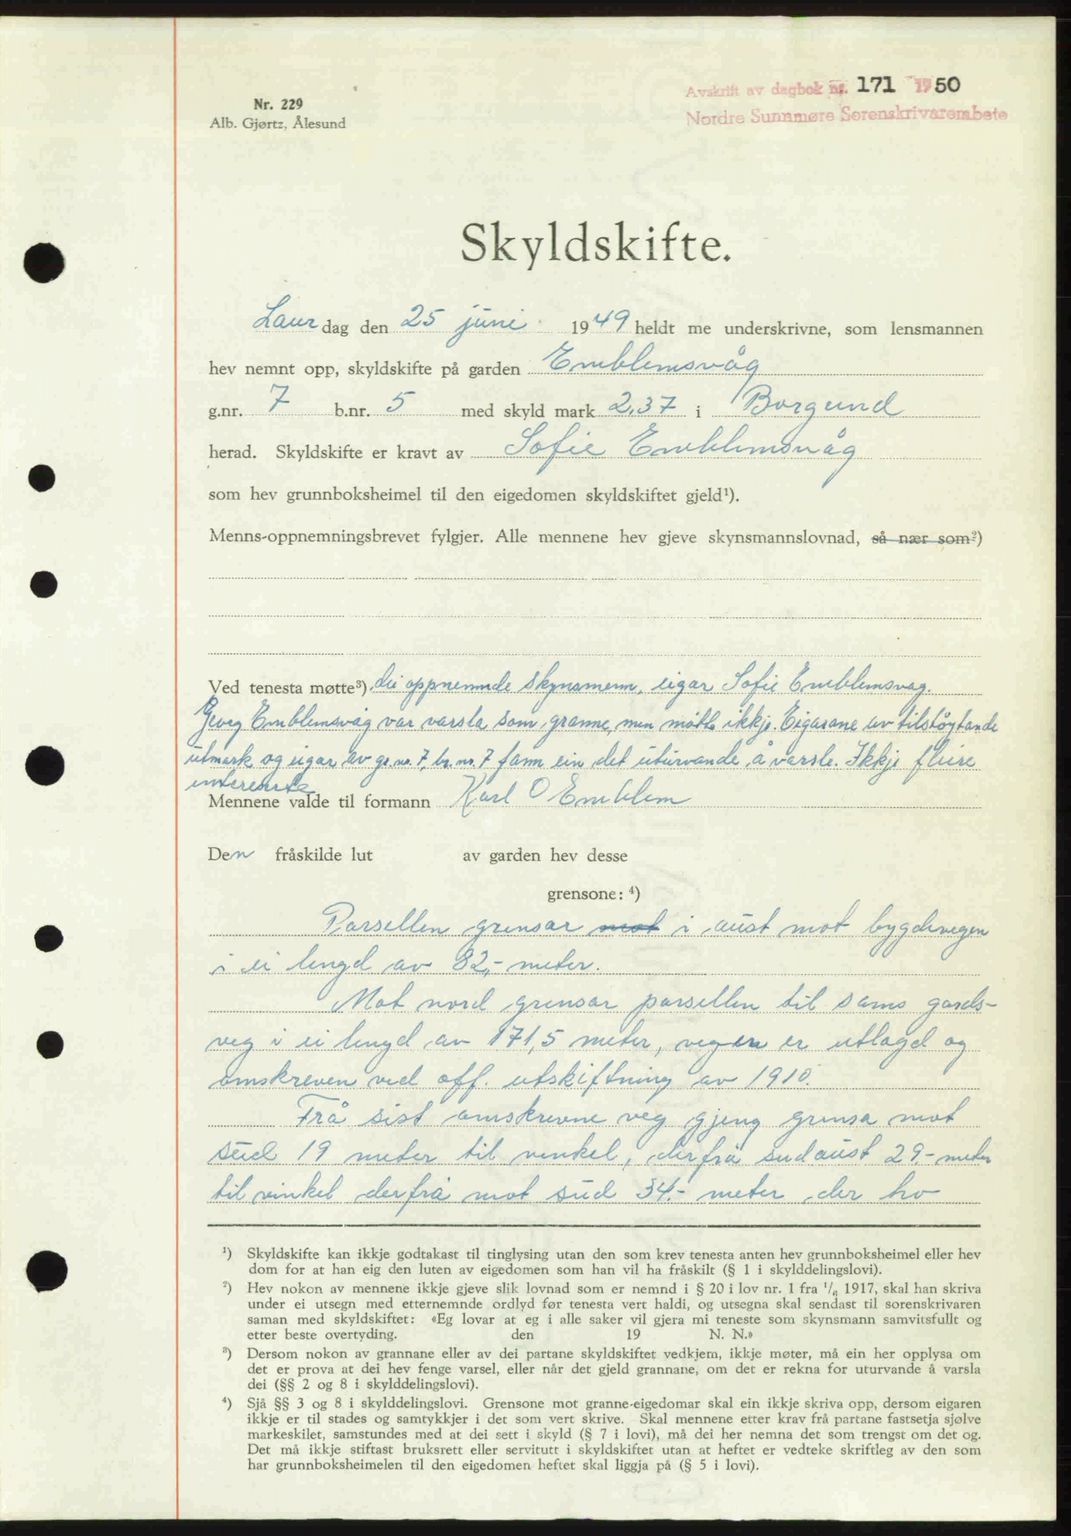 Avskrift av dagbok nr. 171 1950
Nordre Sunnmøre Sorenskrivarembete
Nr. 229
Alb. Gjørtz, Ålesund
Skyldskifte.
Laurdag den 25 juni 1949 heldt me underskrivne, som lensmannen
hev nemnt opp, skyldskifte på garden Emblemsvåg
g.nr. 7 b.nr. 5 med skyld mark 2,37 i Borgund
herad. Skyldskifte er kravt av Sofie Emblemsvåg
som hev grunnboksheimel til den eigedomen skyldskiftet gjeld¹).
Menns-oppnemningsbrevet fylgjer. Alle mennene hev gjeve skynsmannslovnad, så nær som²)
Ved tenesta møtte³) dei oppnemnde skynsmenn, eigar Sofie Emblemsvag.
Georg Emblemsvåg var varsla som granne, men møtte ikkje. Eigarane av tilstøytande
utmark og eigar av gr. nr. 7, br. nr. 7 fann ein det uturvande å varsle. Ikkje fleire
Mennene valde til formann Karl O Emblem
Den fråskilde lut av garden hev desse
grensone: ⁴)
Parsellen grensar mot i aust mot bygdevegen
i ei lengd av 82,- meter.
Mot nord grensar parsellen til sams gards-
veg i ei lengd av 171,5 meter, vegen er utlagd og
omskreven ved off. utskiftning av 1910.
Frå sist omskrevne veg gjeng grensa mot
sud 19 meter til vinkel, derfrå sudaust 29- meter
til vinkel derfrå mot sud 34,- meter der ho
¹) Skyldskifte kan ikkje godtakast til tinglysing utan den som krev tenesta anten hev grunnboksheimel eller hev
dom for at han eig den luten av eigedomen som han vil ha fråskilt (§ 1 i skylddelingslovi).
²) Hev nokon av mennene ikkje gjeve slik lovnad som er nemnd i § 20 i lov nr. 1 fra ¹/₈ 1917, skal han skriva
under ei utsegn med etternemnde ordlyd før tenesta vert haldi, og utsegna skal sendast til sorenskrivaren
saman med skyldskiftet: «Eg lovar at eg i alle saker vil gjera mi teneste som skynsmann samvitsfullt og
etter beste overtyding. den 19 N. N.»
³) Dersom nokon av grannane eller av dei partane skyldskiftet vedkjem, ikkje møter, må ein her opplysa om
det er prova at dei hev fenge varsel, eller når det gjeld grannane, om det er rekna for uturvande å varsla
dei (§§ 2 og 8 i skylddelingslovi).
⁴) Sjå §§ 3 og 8 i skylddelingslovi. Grensone mot granne-eigedomar skal ein ikkje skriva opp, dersom eigaren
ikkje er til stades og samtykkjer i det som vert skrive. Skal mennene etter krav frå partane fastsetja sjølve
markeskilet, samstundes med at dei sett i skyld (§ 7 i lovi), må dei her nemna det som trengst om det og.
Det må ikkje stiftast bruksrett eller servitutt i skyldskiftet utan at heftet er vedteke skriftleg av den som
har grunnboksheimelen til den eigedomen heftet skal liggja på (§ 5 i lovi).